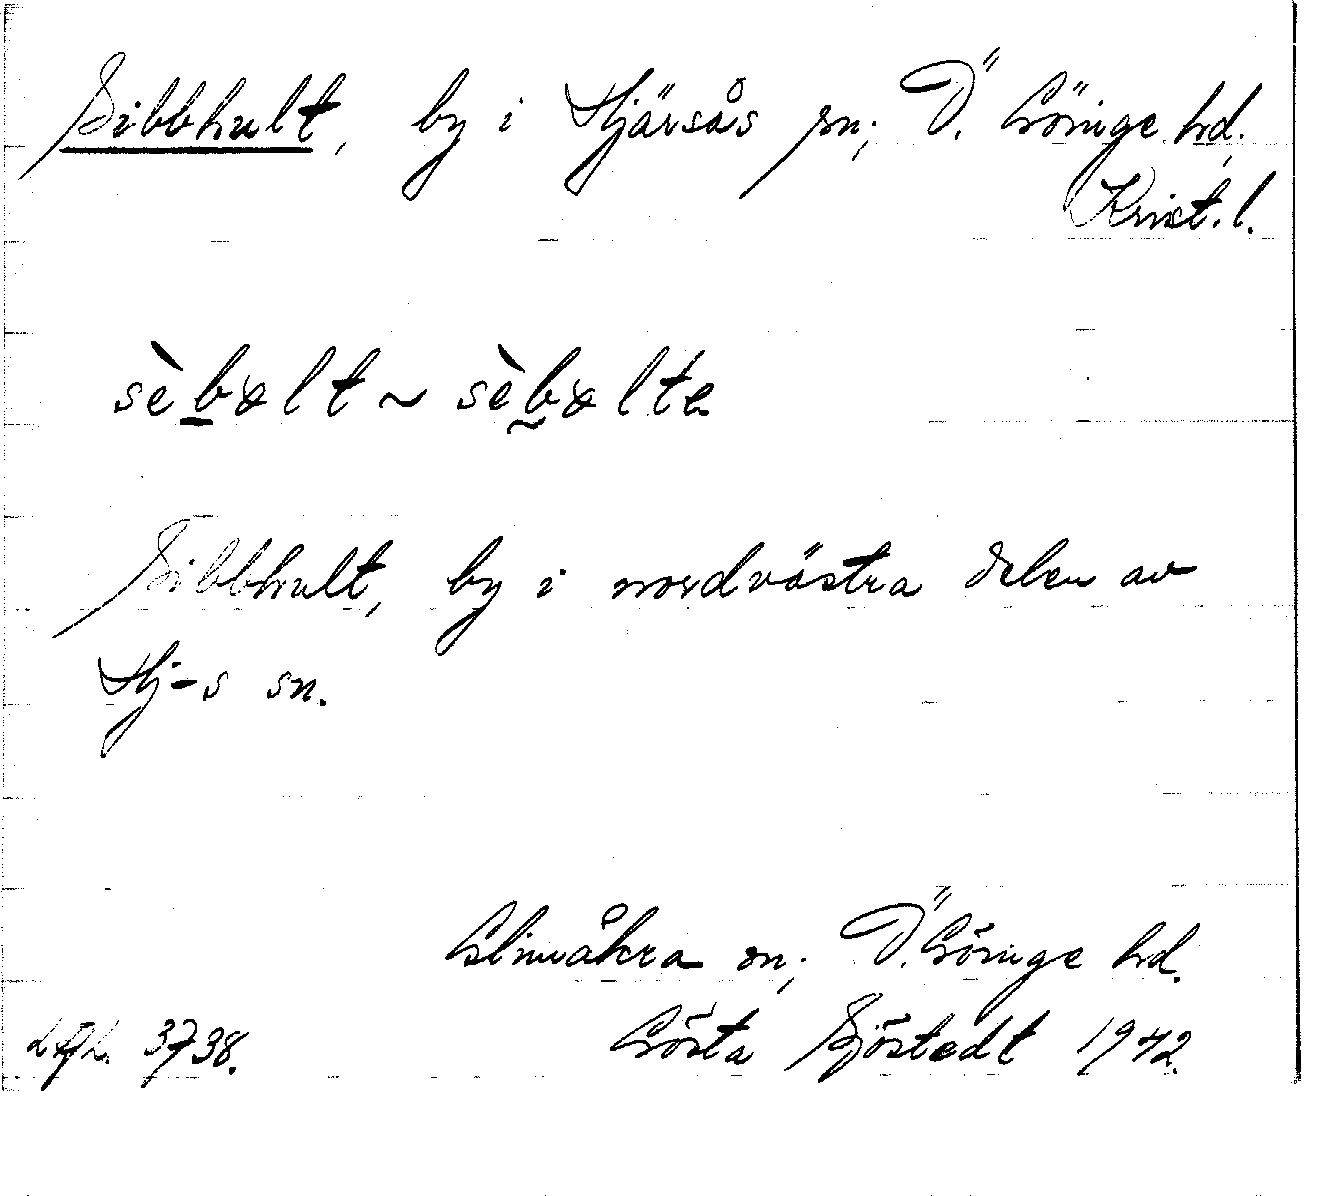 Sibbhult, by i Hjärsås sn; Ö. Göinge hd,
Krist. l.
sèbɵlt ~ sèbɵlte
Sibbhult, by i nordvästra delen av
Hj-s sn.
Glimåkra sn; Ö. Göinge hd.
3738. Gösta Sjöstedt 1942.